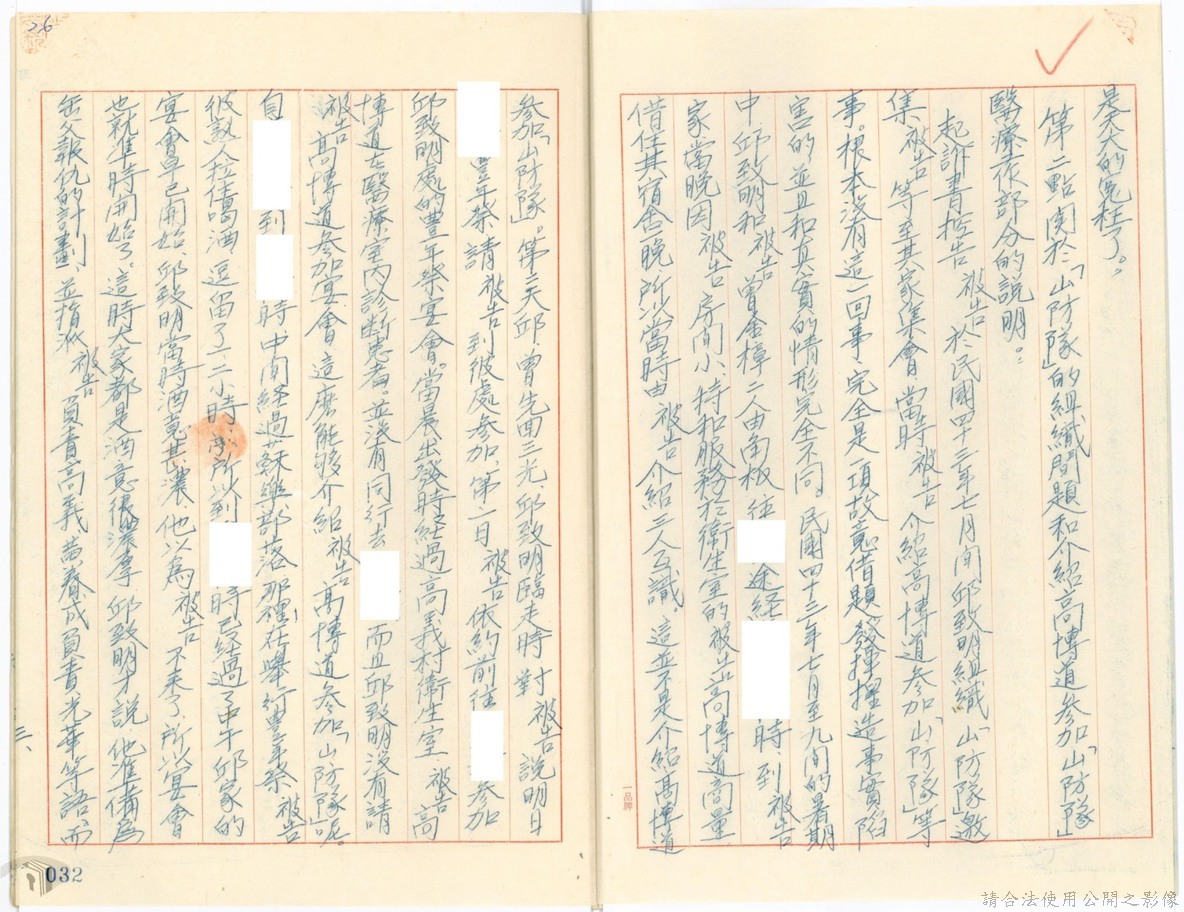 是天大的冤枉了。
第二點関於「山防隊」的組織問題和介紹高博道參加「山防隊」
醫療工作部分的說明：
起訴書控告被告於民國四十三年七月間邱致明組織「山防隊」邀
集被告等至其家集會，當時被告介紹高博道參加「山防隊」等
事。根本沒有這一回事，完全是一項故意借題發揮揑造事實陷
害的，並且和真實的情形完全不同。民國四十三年七月至九間的暑期
中，邱致明和被告曾金樟二人由角板往 途経 時到被告
家，當晚因被告房間小，特和服務於衛生室的被告高博道商量
借住其宿舍晚，所以當時由被告介紹三人互識，這並不是介紹高博道
參加「山防隊」。第二天邱、曾先回三光，邱致明臨走時對被告說明日
豐年祭請被告到彼處參加，第二日被告依約前往 參加
邱致明處的豐年祭宴會。當晨出發時経過高義村衛生室，被告高
博道在醫療室內診斷患者。並沒有同行去 而且邱致明沒有請
被告高博道參加宴會，這麽能够介紹被告高博道參加「山防隊」呢。
自 到 時中間経過蘇樂部落，那裡在舉行豐年祭，被告
彼熟人拉住喝酒，逗留了一、二小時，所以到 時已経過了中午，邱家的
宴會早已開始，邱致明當時酒意甚濃，他以為被告不来了，所以宴會
也就準時開始了。這時大家都是酒意很濃厚，邱致明才說，他準備為
岳父報仇的計劃，並指派被告負責高義，黃春成負責光華等語，而
三、
26
032
一品牌
請合法使用公開之影像